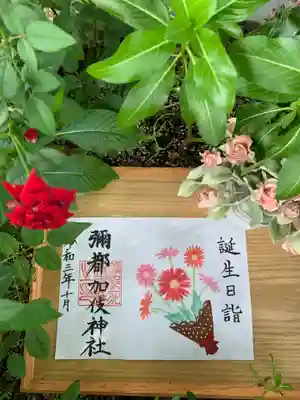 誕生日詣
彌都加伎神社
令和三年十月